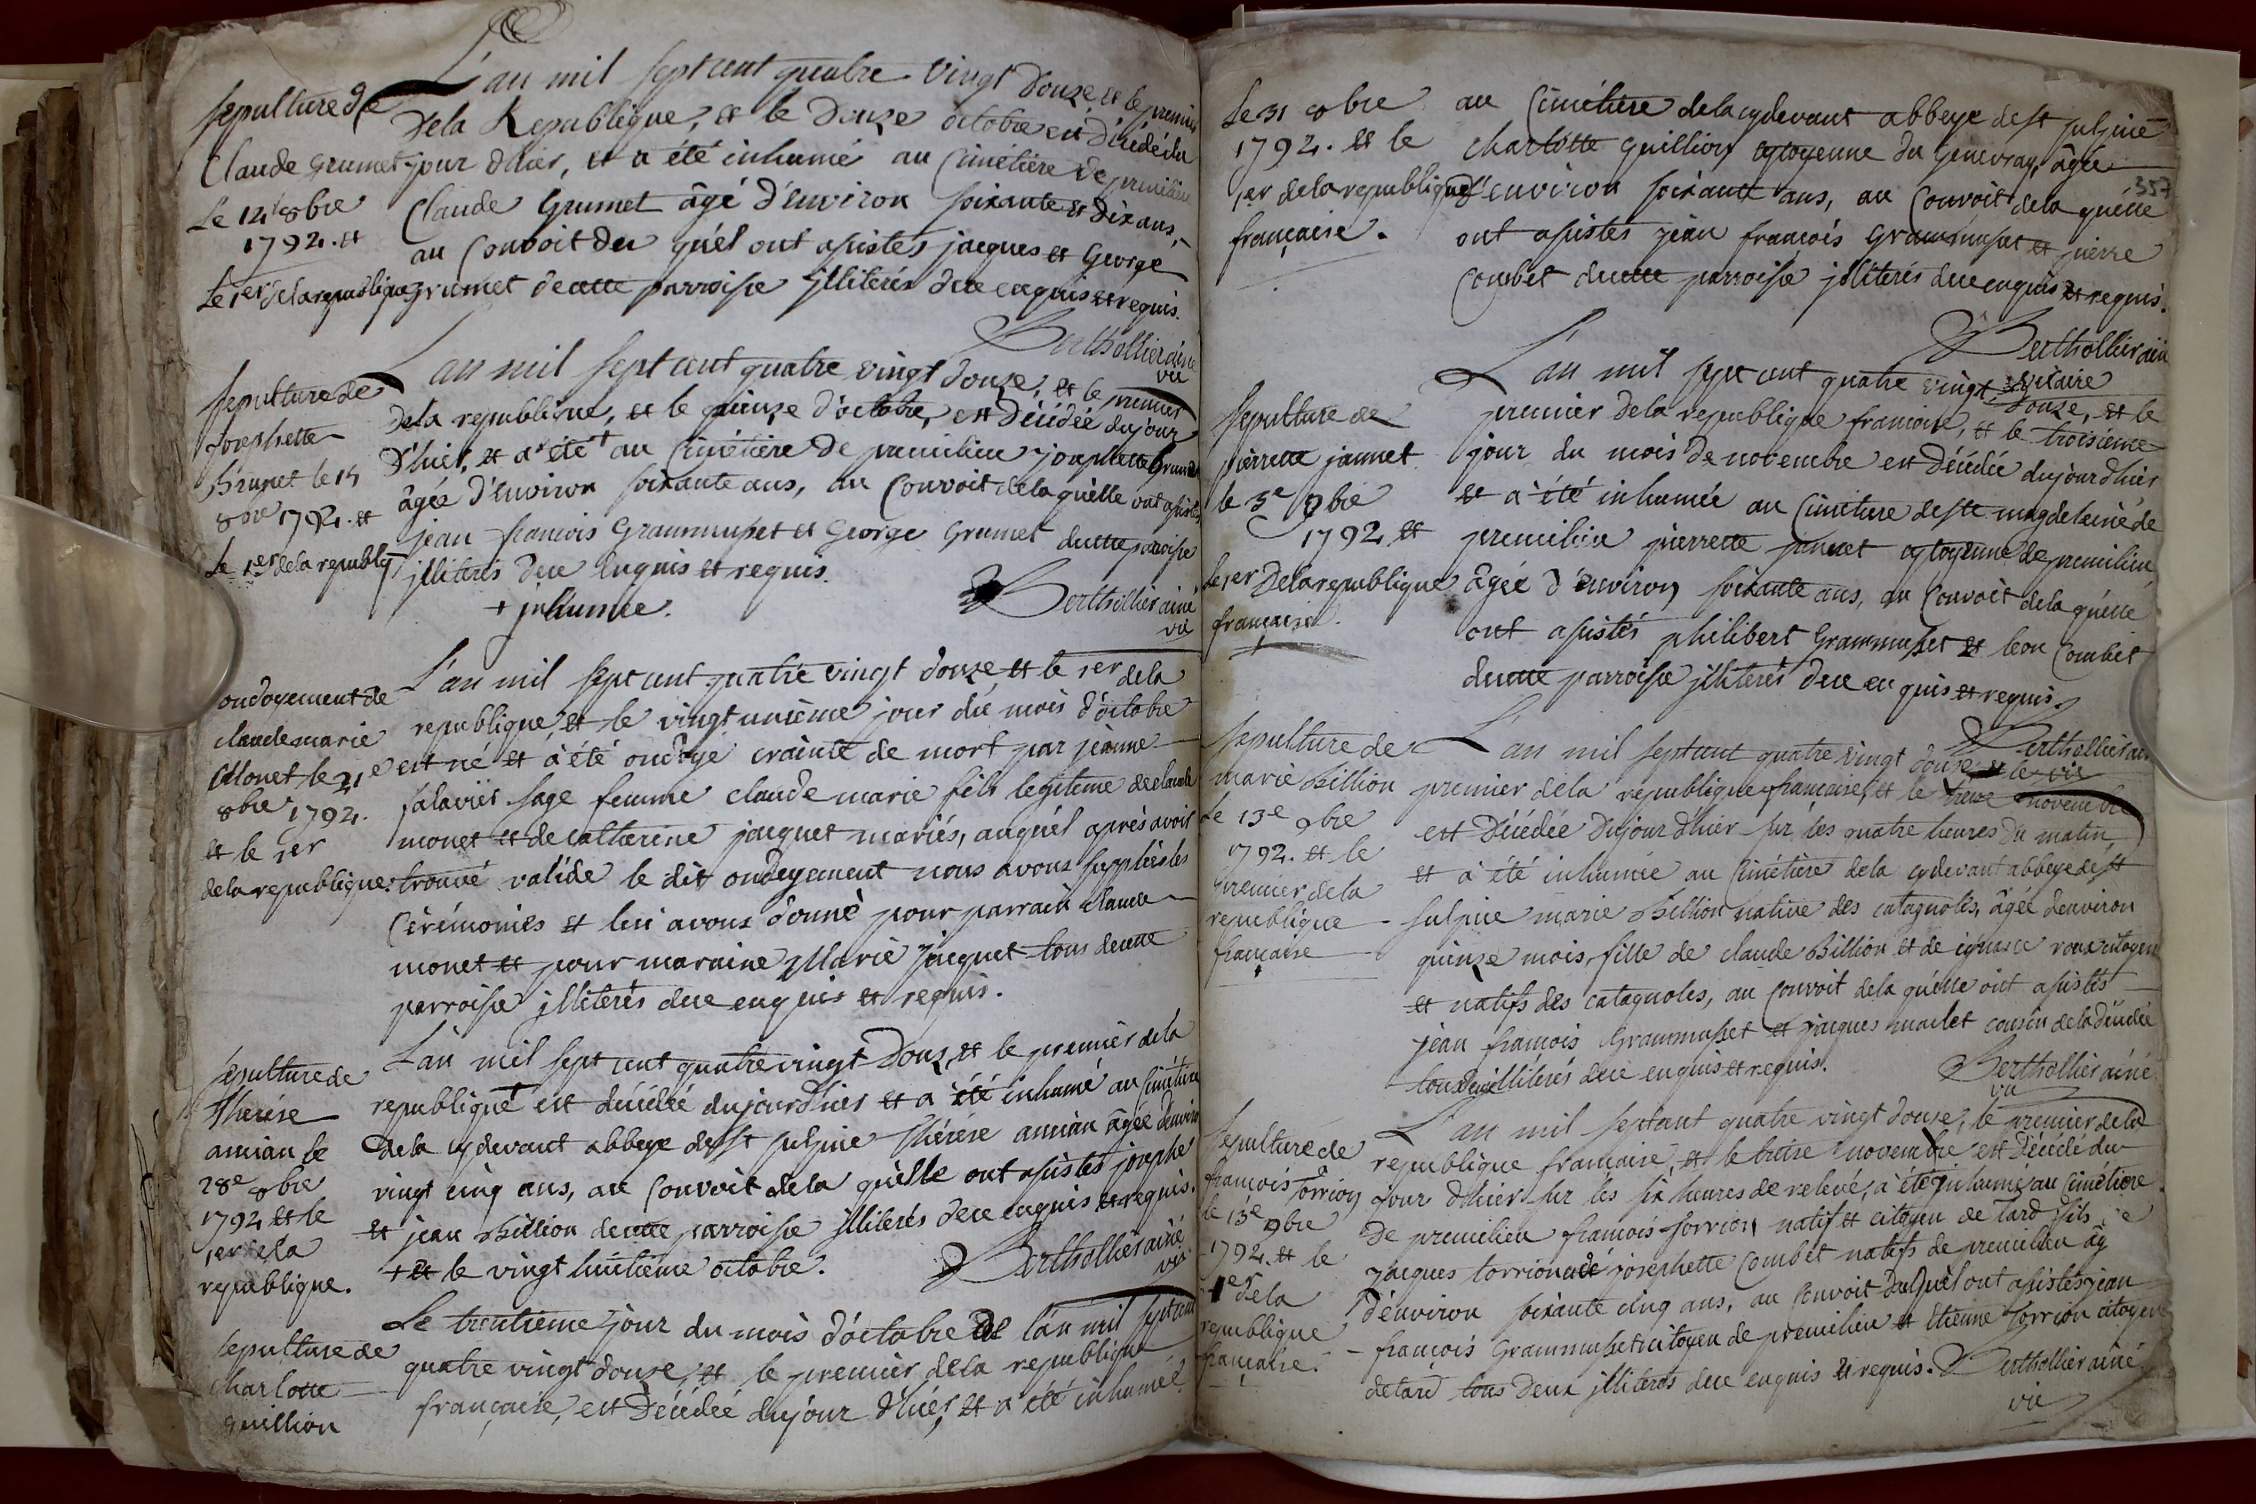 Sepulture de
Claude Grumet
Le 12e 8bre
1792. et
Le 1er dela republique
L'an mil sept cent quatre vingt douze, et le premier
dela Republique, et le douze octobre est décédé du
jour d'hier, et a été inhumé au Cimétière de premilieu
Claude Grumet âgé d'environ soixante et dix ans,
au Convoit du quel ont assistés jacques et George
grumet de cette parroisse illiterés de ce enquis et requis.
Berthollier ainé
vic
Sepulture de
josephette
Brunet le 15
8bre 1792. et
Le 1er dela republiq
L'an mil sept cent quatre vingt douze, et le premier
dela republique, et le quinze d'octobre, est décédée du jour
d'hier, et a été + au Cimétière de premilieu josephette Brunet
âgée d'environ soixante ans, au Convoit dela quelle ont assistés
jean francois Grammusset et George Grumet de cette paroisse
illiterés de ce enquis et requis.
+ inhumée.
Berthollier ainé
vic
ondoyement de
claude marie
Monet le 21e
8bre 1792.
et le 1er
dela republique.
L'an mil sept cent quatre vingt douze, et le 1er dela
republique, et le vingt unième jour du mois d'octobre
est né et à été ondoyé crainte de mort par jeanne
salavier sage femme claude marie fils legitime de claude
monet et de catherine jacquet mariés, auquel après avoir
trouvé valide le dit ondoyement nous avons supplées les
Cérémonies et lui avons donné pour parrain claude
monet et pour maraine Marie jacquet tous de cette
parroisse illiterés de ce enquis et requis.
Sepulture de
Therése
amian le
28e 8bre
1792 et le
1er dela
republique.
L'an mil sept cent quatre vingt douz, et le premier dela
republique + est décédée du jour d'hier et a été inhumé au Cimétière
dela cydevant abbeye de st sulpice Thérése amian âgée d'environ
vingt cinq ans, au Convoit dela quelle ont assistés joseph
et jean Billion de cette parroisse illiterés de ce enquis et requis.
+ et le vingt huitieme octobre.
Berthollier ainé
vic
Sepulture de
Charlotte
guillion
Le trentieme jour du mois d'octobre de l'an mil sept cent
quatre vingt douze, et le premier dela republique
française, est décédée du jour d'hier, et a été inhumée
Le 31 8bre
1792. et le
1er dela republique
française.
357
au Cimétière dela cydevant abbeye de st sulpice
charlotte guillion cytoyenne du Genevray, âgée
d'environ soixante ans, au Convoit dela quelle
ont assistés jean francois Grammusset et pierre
Combet de cette parroisse illiterés de ce enquis et requis.
Berthollier ainé
vicaire
Sepulture de
pierrette jannet
le 3e 9bre
1792 et
le 1er dela republique
française.
L'an mil sept cent quatre vingt douze, et le
premier dela republique francoise, et le troisième
jour du mois de novembre est décédée du jour d'hier
et a été inhumée au Cimétiere de ste magdelaine de
premilieu pierrette jannet cytoyenne de premilieu,
âgée d'environ soixante ans, au Convoit dela quelle
ont assistés philibert Grammusset et leon Combet
de cette parroisse illiterés de ce enquis et requis.
Berthollier ainé
vic
Sepulture de
marie Billion
le 13e 9bre
1792. et le
premier dela
republique
française
L'an mil sept cent quatre vingt douze, et le
premier dela republique française, et le treize novembre
est décédée du jour d'hier sur les quatre heures du matin,
et a été inhumée au Cimétière dela cydevant abbeye de st
sulpice marie Billion native des catagnoles, âgée d'environ
quinze mois, fille de claude Billion et de ignasce roux citoyens
et natifs des catagnoles, au Convoit dela quelle ont assistés
jean francois Grammusset et jacques mailet cousin dela décédée
tous deux illiterés de ce enquis et requis.
Berthollier ainé
vic
Sepulture de
francois Torrion
le 13e 9bre
1792. et le
1er dela
republique
française.
L'an mil sept cent quatre vingt douze, le premier dela
republique française, et le treize novembre est décédé du
jour d'hier sur les six heures de relevé, a été inhumé au Cimétiere
de premilieu francois Torrion natif et citoyen de Tard fils de
jacques torrion et de josephette Combet natifs de premilieu âgé
d'environ soixante cinq ans, au Convoit du quel ont assistés jean
francois Grammusset citoyen de premilieu et Etienne Torrion citoyen
de tard tous deux illiterés de ce enquis et requis. Berthollier ainé
vic